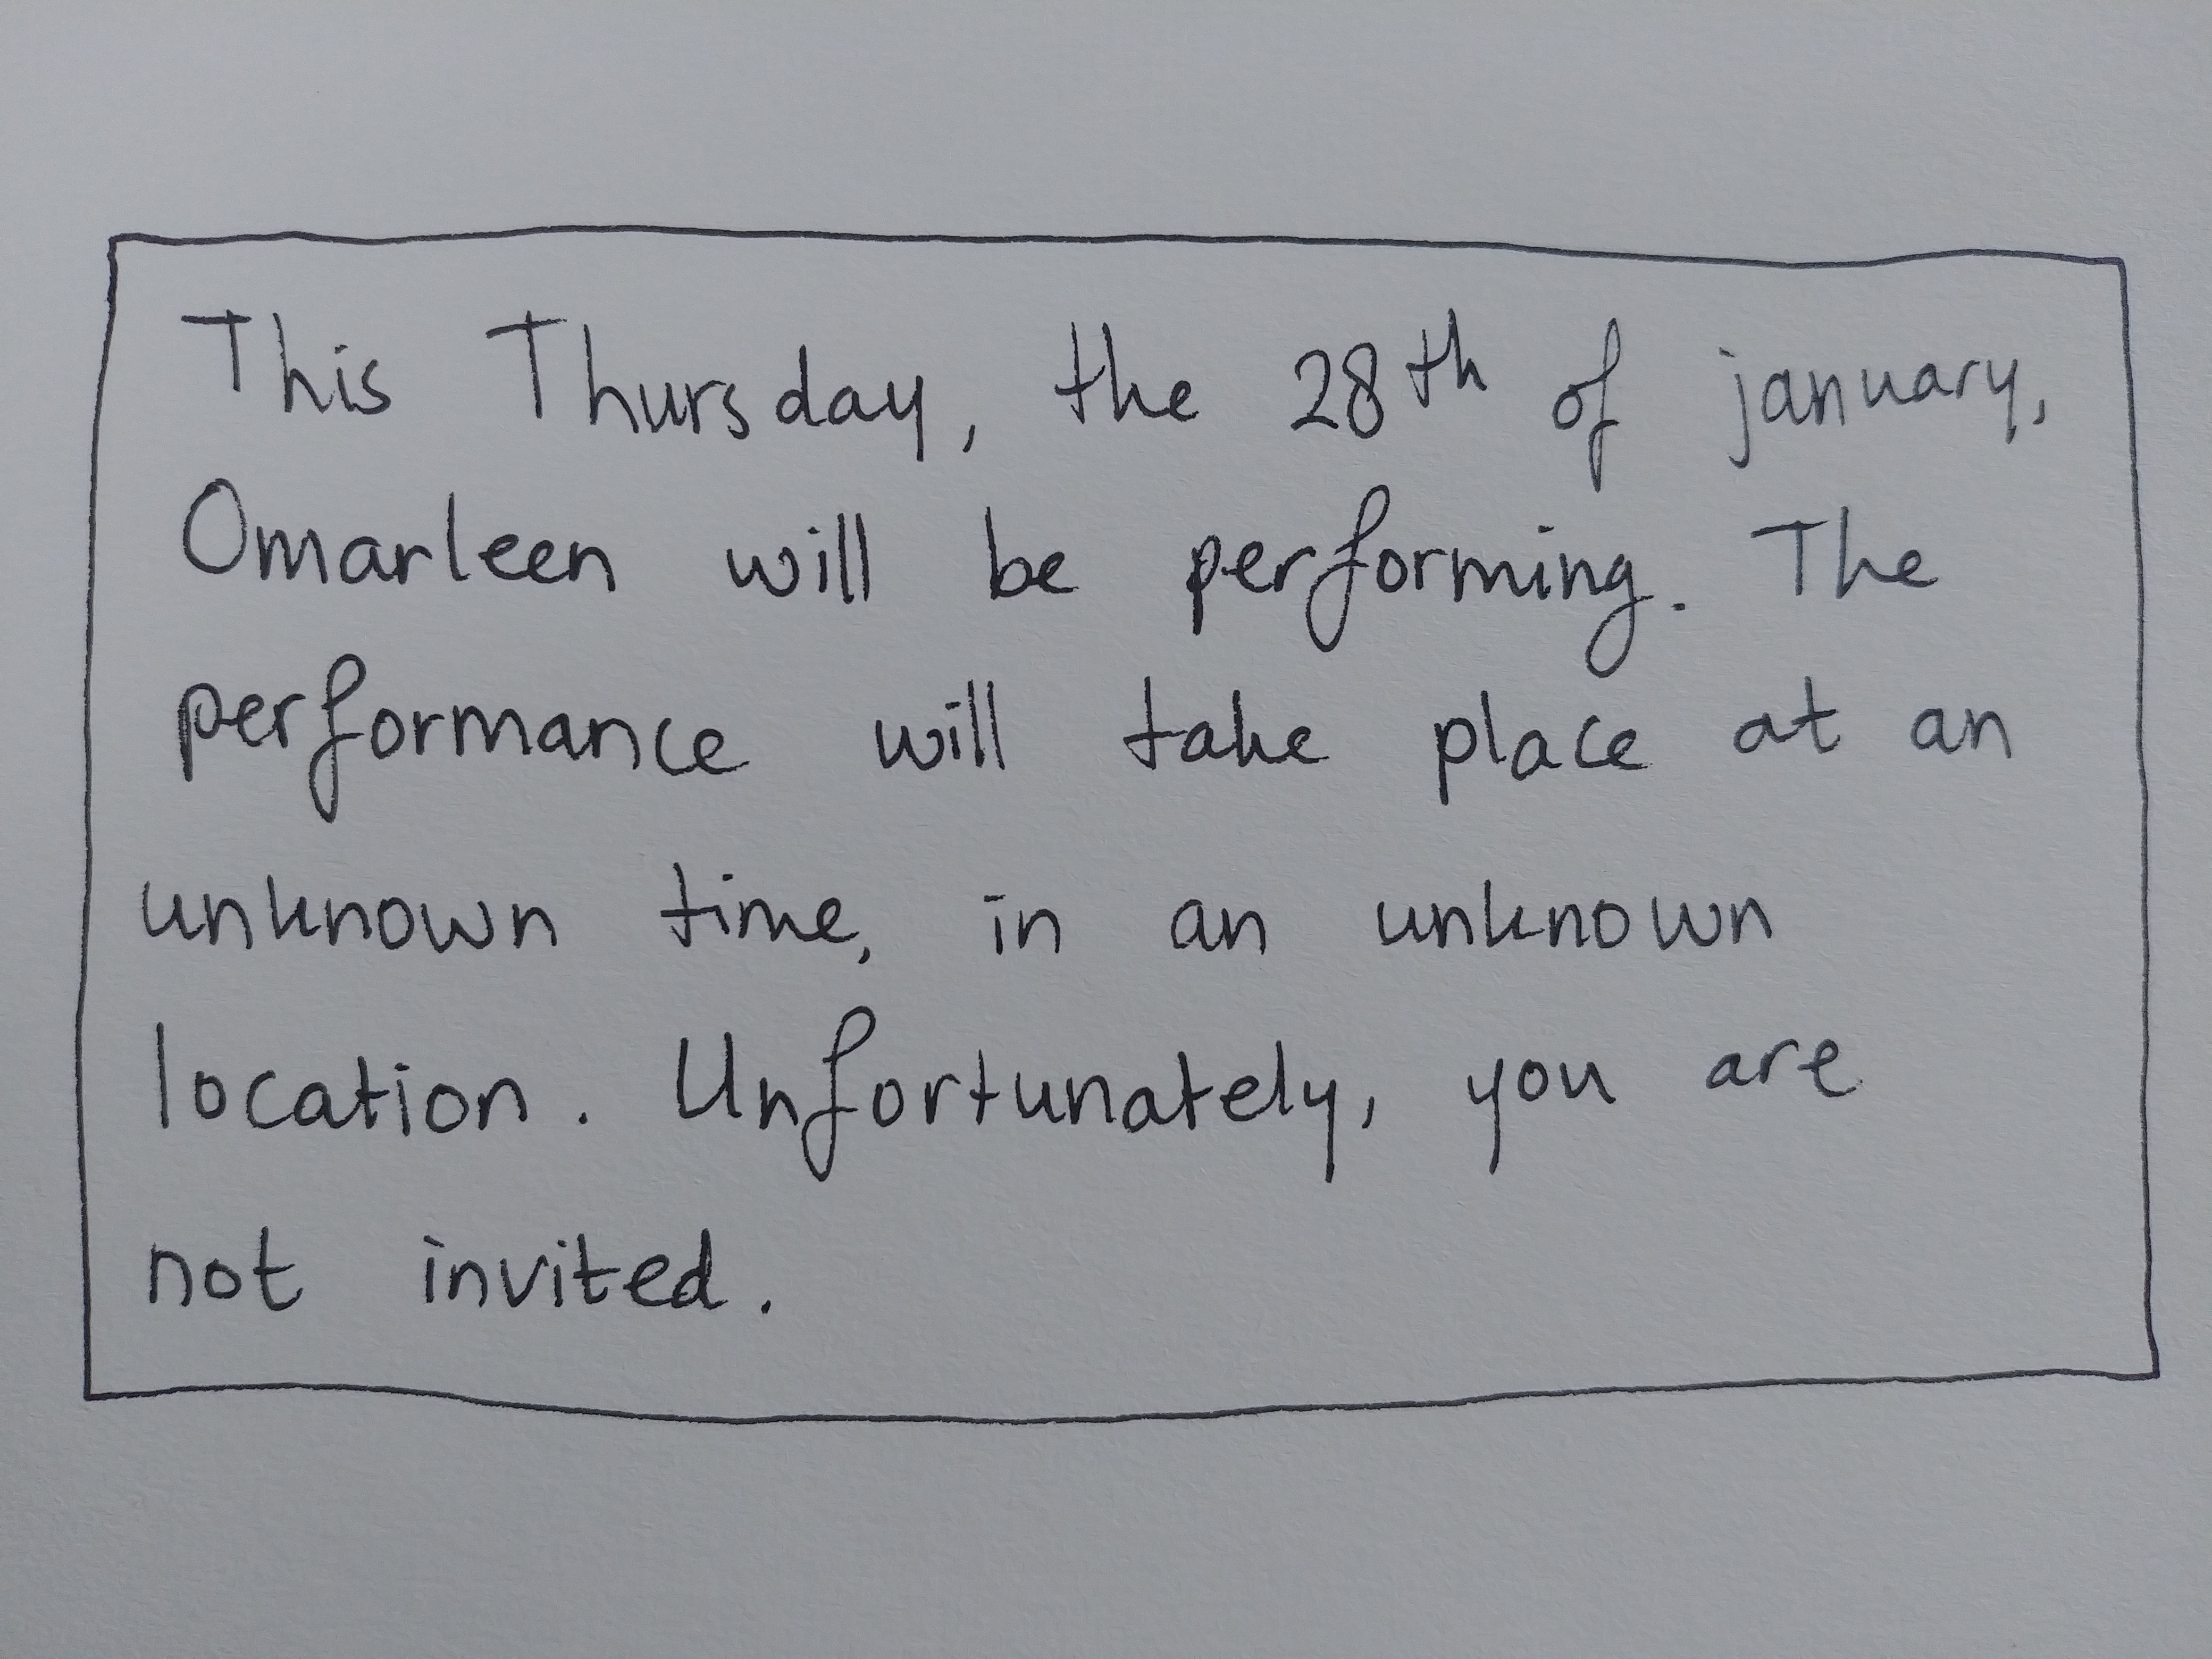 This Thursday, the 28th of january,
Omarleen will be performing. The
performance will take place at an
unknown time, in an unknown
location. Unfortunately, you are
not invited.